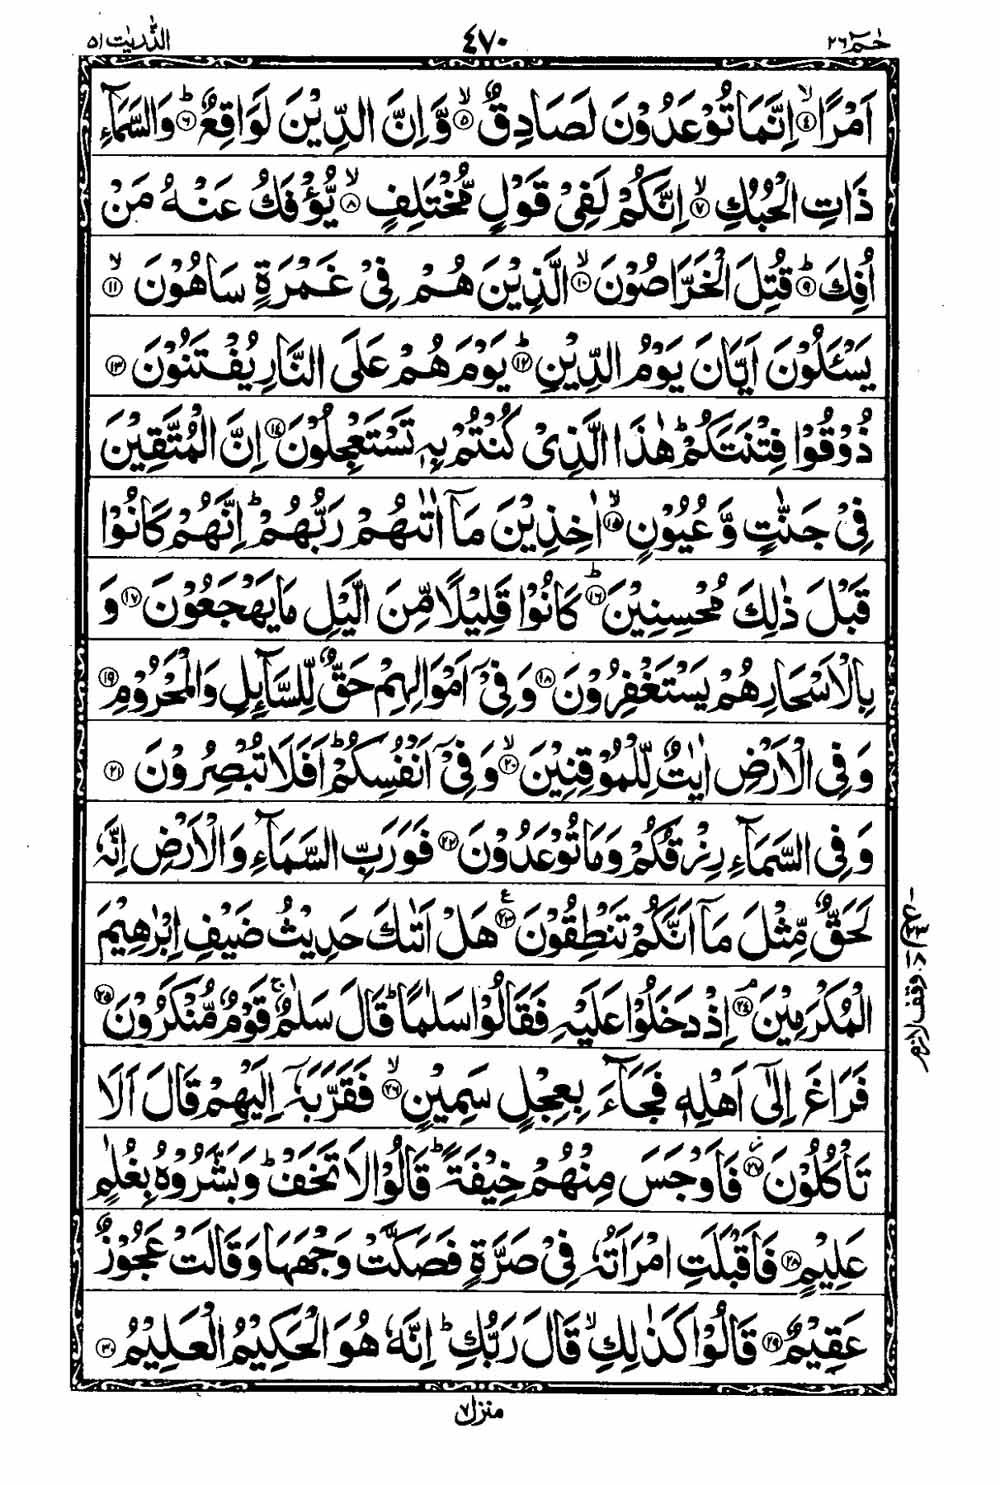 حٰمٓ ٢٦ ٤٧٠ الذّٰريٰت ٥١
اَمْرًا ۙ﴿۴﴾ اِنَّمَا تُوْعَدُوْنَ لَصَادِقٌ ۙ﴿۵﴾ وَّ اِنَّ الدِّيْنَ لَوَاقِعٌ ؕ﴿۶﴾ وَالسَّمَآءِ
ذَاتِ الْحُبُكِ ۙ﴿۷﴾ اِنَّكُمْ لَفِيْ قَوْلٍ مُّخْتَلِفٍ ۙ﴿۸﴾ يُّؤْفَكُ عَنْهُ مَنْ
اُفِكَ ؕ﴿۹﴾ قُتِلَ الْخَرّٰصُوْنَ ۙ﴿۱۰﴾ الَّذِيْنَ هُمْ فِيْ غَمْرَةٍ سَاهُوْنَ ۙ﴿۱۱﴾
يَسْـَٔلُوْنَ اَيَّانَ يَوْمُ الدِّيْنِ ؕ﴿۱۲﴾ يَوْمَ هُمْ عَلَى النَّارِ يُفْتَنُوْنَ ﴿۱۳﴾
ذُوْقُوْا فِتْنَتَكُمْ ؕ هٰذَا الَّذِيْ كُنْتُمْ بِهٖ تَسْتَعْجِلُوْنَ ﴿۱۴﴾ اِنَّ الْمُتَّقِيْنَ
فِيْ جَنّٰتٍ وَّ عُيُوْنٍ ۙ﴿۱۵﴾ اٰخِذِيْنَ مَاۤ اٰتٰىهُمْ رَبُّهُمْ ؕ اِنَّهُمْ كَانُوْا
قَبْلَ ذٰلِكَ مُحْسِنِيْنَ ؕ﴿۱۶﴾ كَانُوْا قَلِيْلًا مِّنَ الَّيْلِ مَا يَهْجَعُوْنَ ﴿۱۷﴾ وَ
بِالْاَسْحَارِ هُمْ يَسْتَغْفِرُوْنَ ﴿۱۸﴾ وَ فِيْۤ اَمْوَالِهِمْ حَقٌّ لِّلسَّآئِلِ وَالْمَحْرُوْمِ ﴿۱۹﴾
وَ فِي الْاَرْضِ اٰيٰتٌ لِّلْمُوْقِنِيْنَ ۙ﴿۲۰﴾ وَ فِيْۤ اَنْفُسِكُمْ ؕ اَفَلَا تُبْصِرُوْنَ ﴿۲۱﴾
وَ فِي السَّمَآءِ رِزْقُكُمْ وَمَا تُوْعَدُوْنَ ﴿۲۲﴾ فَوَرَبِّ السَّمَآءِ وَالْاَرْضِ اِنَّهٗ
لَحَقٌّ مِّثْلَ مَاۤ اَنَّكُمْ تَنْطِقُوْنَ ﴿۲۳﴾ع هَلْ اَتٰىكَ حَدِيْثُ ضَيْفِ اِبْرٰهِيْمَ
الْمُكْرَمِيْنَ ۘ﴿۲۴﴾ اِذْ دَخَلُوْا عَلَيْهِ فَقَالُوْا سَلٰمًا ؕ قَالَ سَلٰمٌ ۚ قَوْمٌ مُّنْكَرُوْنَ ﴿۲۵﴾
فَرَاغَ اِلٰۤى اَهْلِهٖ فَجَآءَ بِعِجْلٍ سَمِيْنٍ ۙ﴿۲۶﴾ فَقَرَّبَهٗۤ اِلَيْهِمْ قَالَ اَلَا
تَاْكُلُوْنَ ؗ﴿۲۷﴾ فَاَوْجَسَ مِنْهُمْ خِيْفَةً ؕ قَالُوْا لَا تَخَفْ ؕ وَ بَشَّرُوْهُ بِغُلٰمٍ
عَلِيْمٍ ﴿۲۸﴾ فَاَقْبَلَتِ امْرَاَتُهٗ فِيْ صَرَّةٍ فَصَكَّتْ وَجْهَهَا وَقَالَتْ عَجُوْزٌ
عَقِيْمٌ ﴿۲۹﴾ قَالُوْا كَذٰلِكِ ۙ قَالَ رَبُّكِ ؕ اِنَّهٗ هُوَ الْحَكِيْمُ الْعَلِيْمُ ﴿۳۰﴾
وقف لازم
منزل ٧